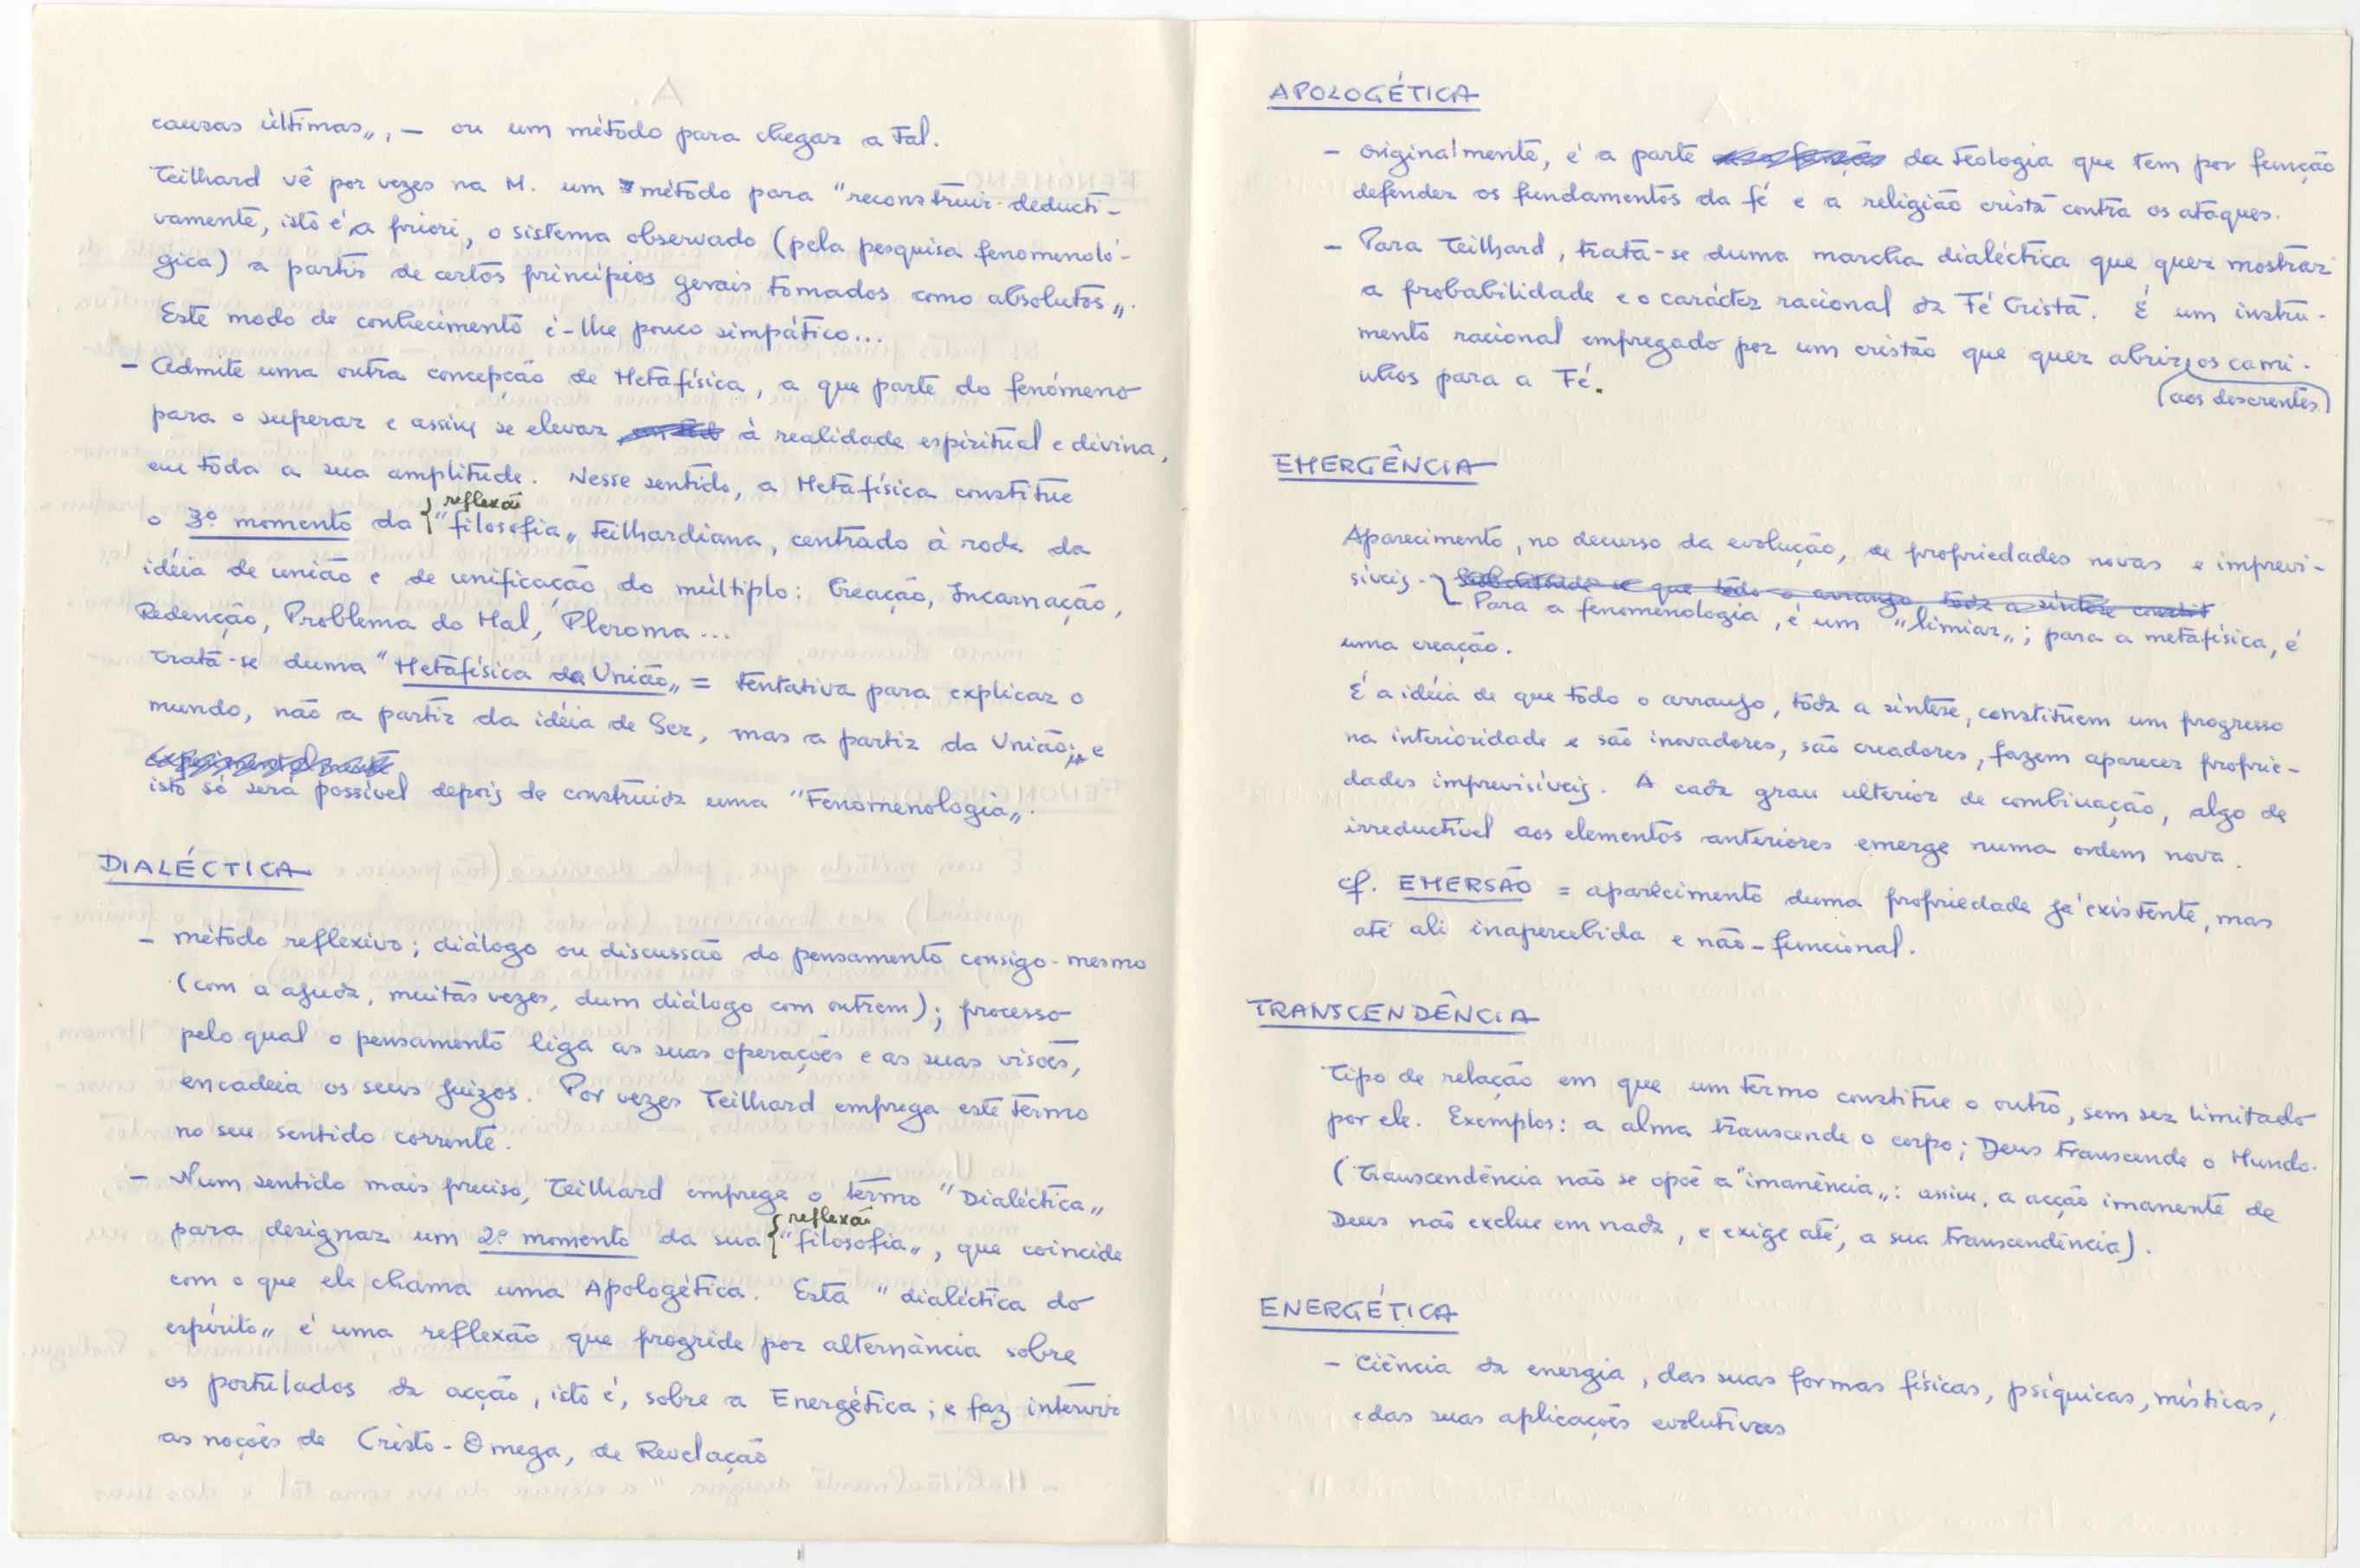 causas últimas„, — ou um método para chegar a tal.
Teilhard vê por vezes na M. um método para "reconstruir deducti-
vamente, isto é, a priori, o sistema observado (pela pesquisa fenomenoló-
gica) a partir de certos princípios gerais tomados como absolutos„.
Este modo de conhecimento é-lhe pouco simpático...
— Admite uma outra concepção de Metafísica, a que parte do fenómeno
para o superar e assim se elevar à realidade espiritual e divina,
em toda a sua amplitude. Nesse sentido, a Metafísica constitue
reflexão
o 3º momento da "filosofia„ teilhardiana, centrado à roda da
idéia de união e de unificação do múltiplo: Creação, Incarnação,
Redenção, Problema do Mal, Pleroma...
Trata-se duma "Metafísica da União„ = tentativa para explicar o
mundo, não a partir da idéia de Ser, mas a partir da União; e
isto só será possível depois de construida uma "Fenomenologia„.
DIALÉCTICA
— método reflexivo; diálogo ou discussão do pensamento consigo-mesmo
(com a ajuda, muitas vezes, dum diálogo com outrem); processo
pelo qual o pensamento liga as suas operações e as suas visões,
encadeia os seus juizos. Por vezes Teilhard emprega este termo
no seu sentido corrente.
— Num sentido mais preciso, Teilhard emprega o termo "Dialéctica„
reflexão
para designar um 2º momento da sua "filosofia„, que coincide
com o que ele chama uma Apologética. Esta "dialéctica do
espírito„ é uma reflexão que progride por alternância sobre
os postulados da acção, isto é, sobre a Energética; e faz intervir
as noções de Cristo-Omega, de Revelação
APOLOGÉTICA
— originalmente, é a parte da teologia que tem por função
defender os fundamentos da fé e a religião cristã contra os ataques.
— Para Teilhard, trata-se duma marcha dialéctica que quer mostrar
a probabilidade e o carácter racional da Fé Cristã. É um instru-
mento racional empregado por um cristão que quer abrir os cami-
(aos descrentes)
nhos para a Fé.
EMERGÊNCIA
Aparecimento, no decurso da evolução, de propriedades novas e imprevi-
síveis. Subentende-se que todo o arranjo toda a síntese constit
Para a fenomenologia, é um "limiar„; para a metafísica, é
uma creação.
É a idéia de que todo o arranjo, toda a síntese, constituem um progresso
na interioridade e são inovadores, são creadores, fazem aparecer proprie-
dades imprevisíveis. A cada grau ulterior de combinação, algo de
irreductível aos elementos anteriores emerge numa ordem nova.
cf. EMERSÃO = aparecimento duma propriedade já existente, mas
até ali inapercebida e não-funcional.
TRANSCENDÊNCIA
Tipo de relação em que um termo constitue o outro, sem ser limitado
por ele. Exemplos: a alma transcende o corpo; Deus transcende o Mundo.
(Transcendência não se opõe a "imanência„: assim, a acção imanente de
Deus não exclue em nada, e exige até, a sua transcendência).
ENERGÉTICA
— Ciência da energia, das suas formas físicas, psíquicas, místicas,
e das suas aplicações evolutivas